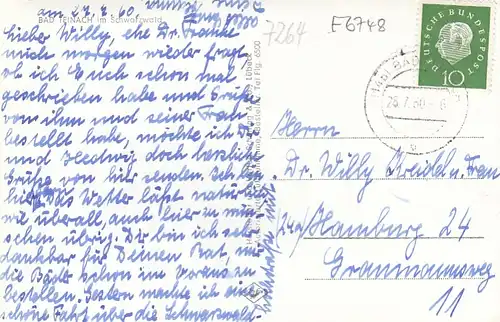 am 27.7.60.
BAD TEINACH im Schwarzwald
Lieber Willy, ehe Dr. Franke
mich morgen wieder fragt
ob ich Euch schon mal
geschrieben habe und Grüße
von ihm und seiner Frau
bestellt habe, möchte ich Dir
und Hedwig doch herzliche
Grüße von hier senden. Ich bin
hier. Das Wetter läßt natürlich
wie überall, auch hier zu wün
schen übrig. Dir bin ich sehr
dankbar für Deinen Rat, mir
die Bäder schon im Voraus zu
bestellen. Gestern machte ich eine
schöne Fahrt über die Schwarzwald-
7264
E6748
DEUTSCHE BUNDESPOST
10
28.7.60
Herrn
Dr. Willy Kreidel u. Frau
(24a) Hamburg 24
Graumannsweg
11